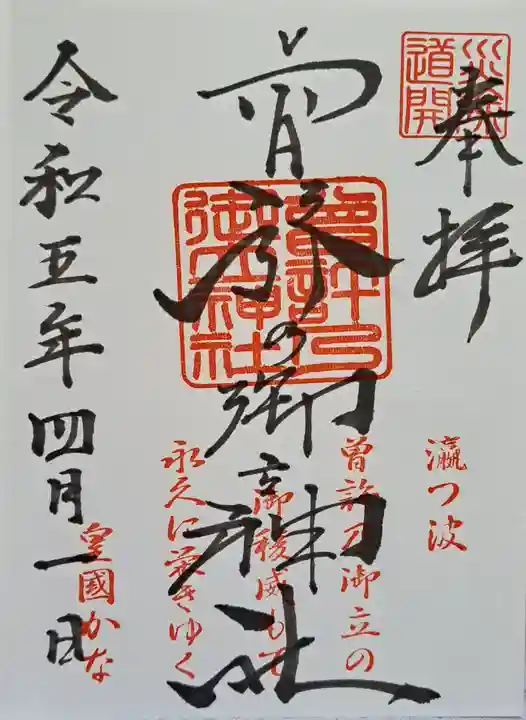 災除
道開
奉拝
曽許の御立神社
曽許乃
御立神社
令和五年四月一日
瀛つ波
曽許乃御立の
御稜威もて
永久に栄きゆく
皇國かな